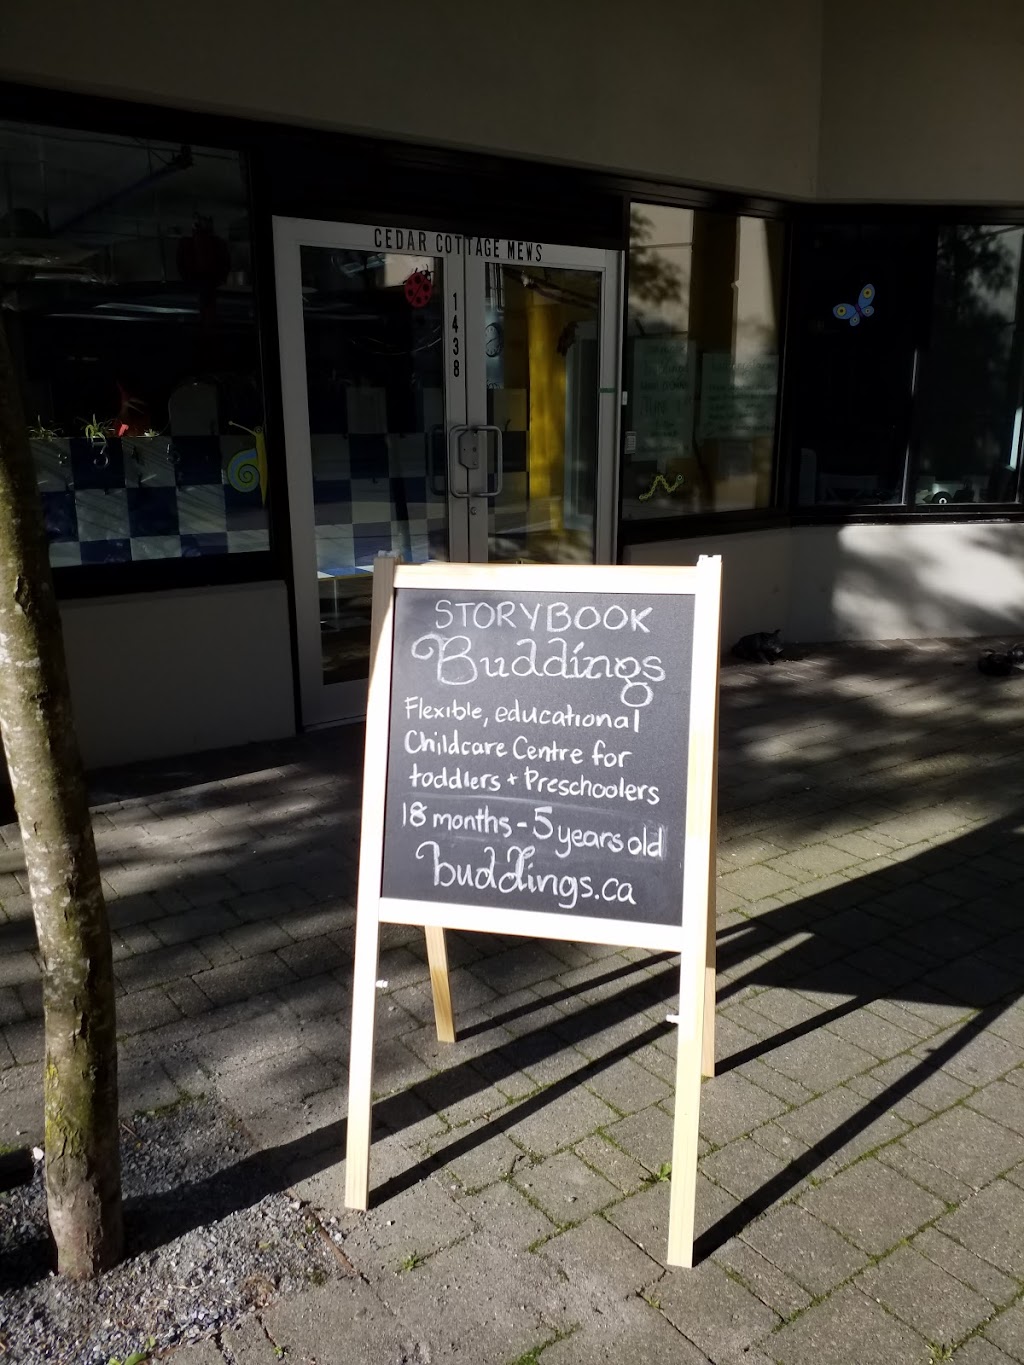 CEDAR COTTAGE MEWS
1438
STORYBOOK
Buddings
Flexible, educational
Childcare Centre for
toddlers + Preschoolers
18 months - 5 years old
buddings.ca